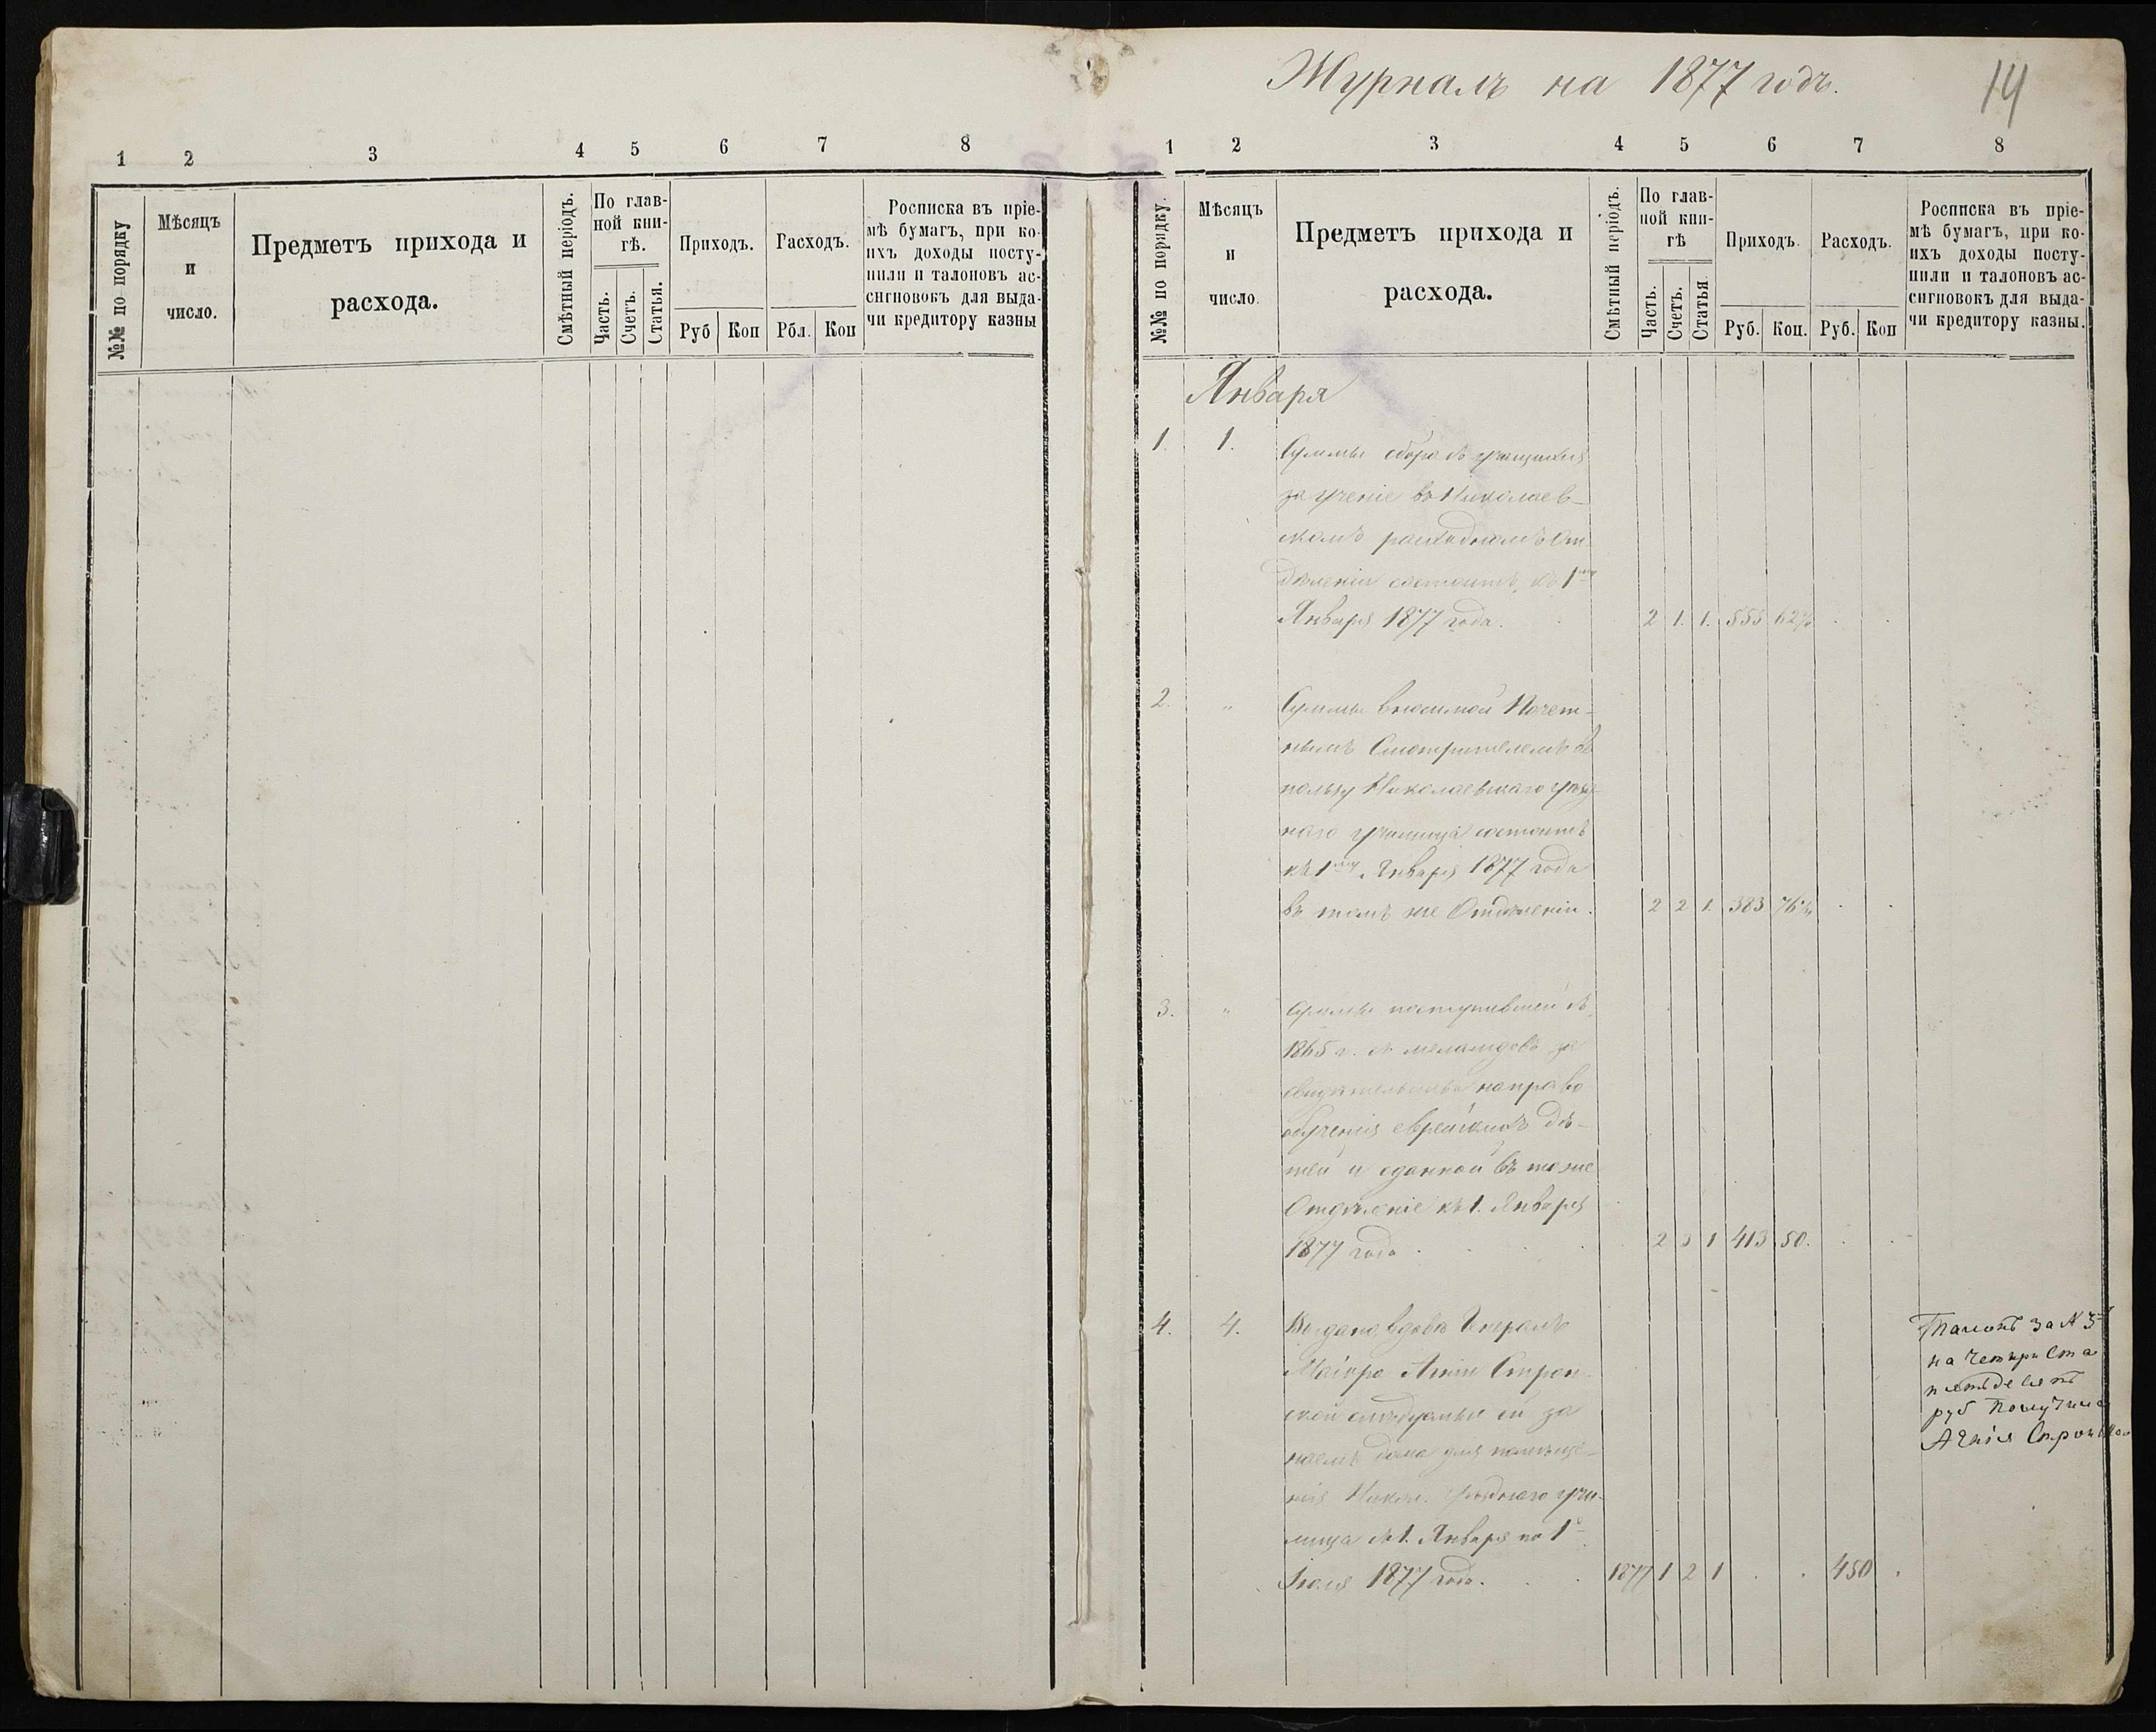 Журналъ на 1877 годъ.
14
1 2 3 4 5 6 7 8
№№ по порядку
Мѣсяцъ
и
число.
Предметъ прихода и
расхода.
Смѣтный періодъ.
По глав-
ной кни-
гѣ.
Часть.
Счетъ.
Статья.
Приходъ.
Руб Коп
Расходъ.
Рбл. Коп
Росписка въ пріе-
мѣ бумагъ, при ко-
ихъ доходы посту-
пили и талоновъ ас-
сигновокъ для выда-
чи кредитору казны
1 2 3 4 5 6 7 8
№№ по порядку.
Мѣсяцъ
и
число.
Предметъ прихода и
расхода.
Смѣтный періодъ.
По глав-
ной кни-
гѣ
Часть.
Счетъ.
Статья.
Приходъ.
Руб. Коп.
Расходъ.
Руб. Коп
Росписка въ пріе-
мѣ бумагъ, при ко-
ихъ доходы посту-
пили и талоновъ ас-
сигновокъ для выда-
чи кредитору казны.
Января
1. 1. Суммы сбора съ учащихся
за ученіе въ Николаев-
скомъ расходномъ От-
дѣленіи состоитъ, къ 1му
Января 1877 года. 2 1. 1. 555
2. " Суммы вносимой Почет-
нымъ Смотрителемъ въ
пользу Николаевскаго уѣзд-
наго училища состоитъ
къ 1му Января 1877 года
въ томъ же Отдѣленіи. 2 2 1. 383
3. " Суммы поступившей въ
1865 г. съ меламдовъ за
свидѣтельства на право
обученія еврейскихъ дѣ-
тей и сданной въ тоже
Отдѣленіе къ 1. Января
1877 года. 2 3 1 413 50.
4. 4. Выдано вдовѣ Генералъ
Маіора Агніи Строн-
ской слѣдуемые ей за
наемъ дома для помѣще-
нія Никол. Уѣзднаго учи-
лища съ 1. Января по 1е
Іюля 1877 года. 1877 1 2 1 450
Талонъ за № 3
на четыриста
пятьдесятъ
руб получила
Агнія Стронская